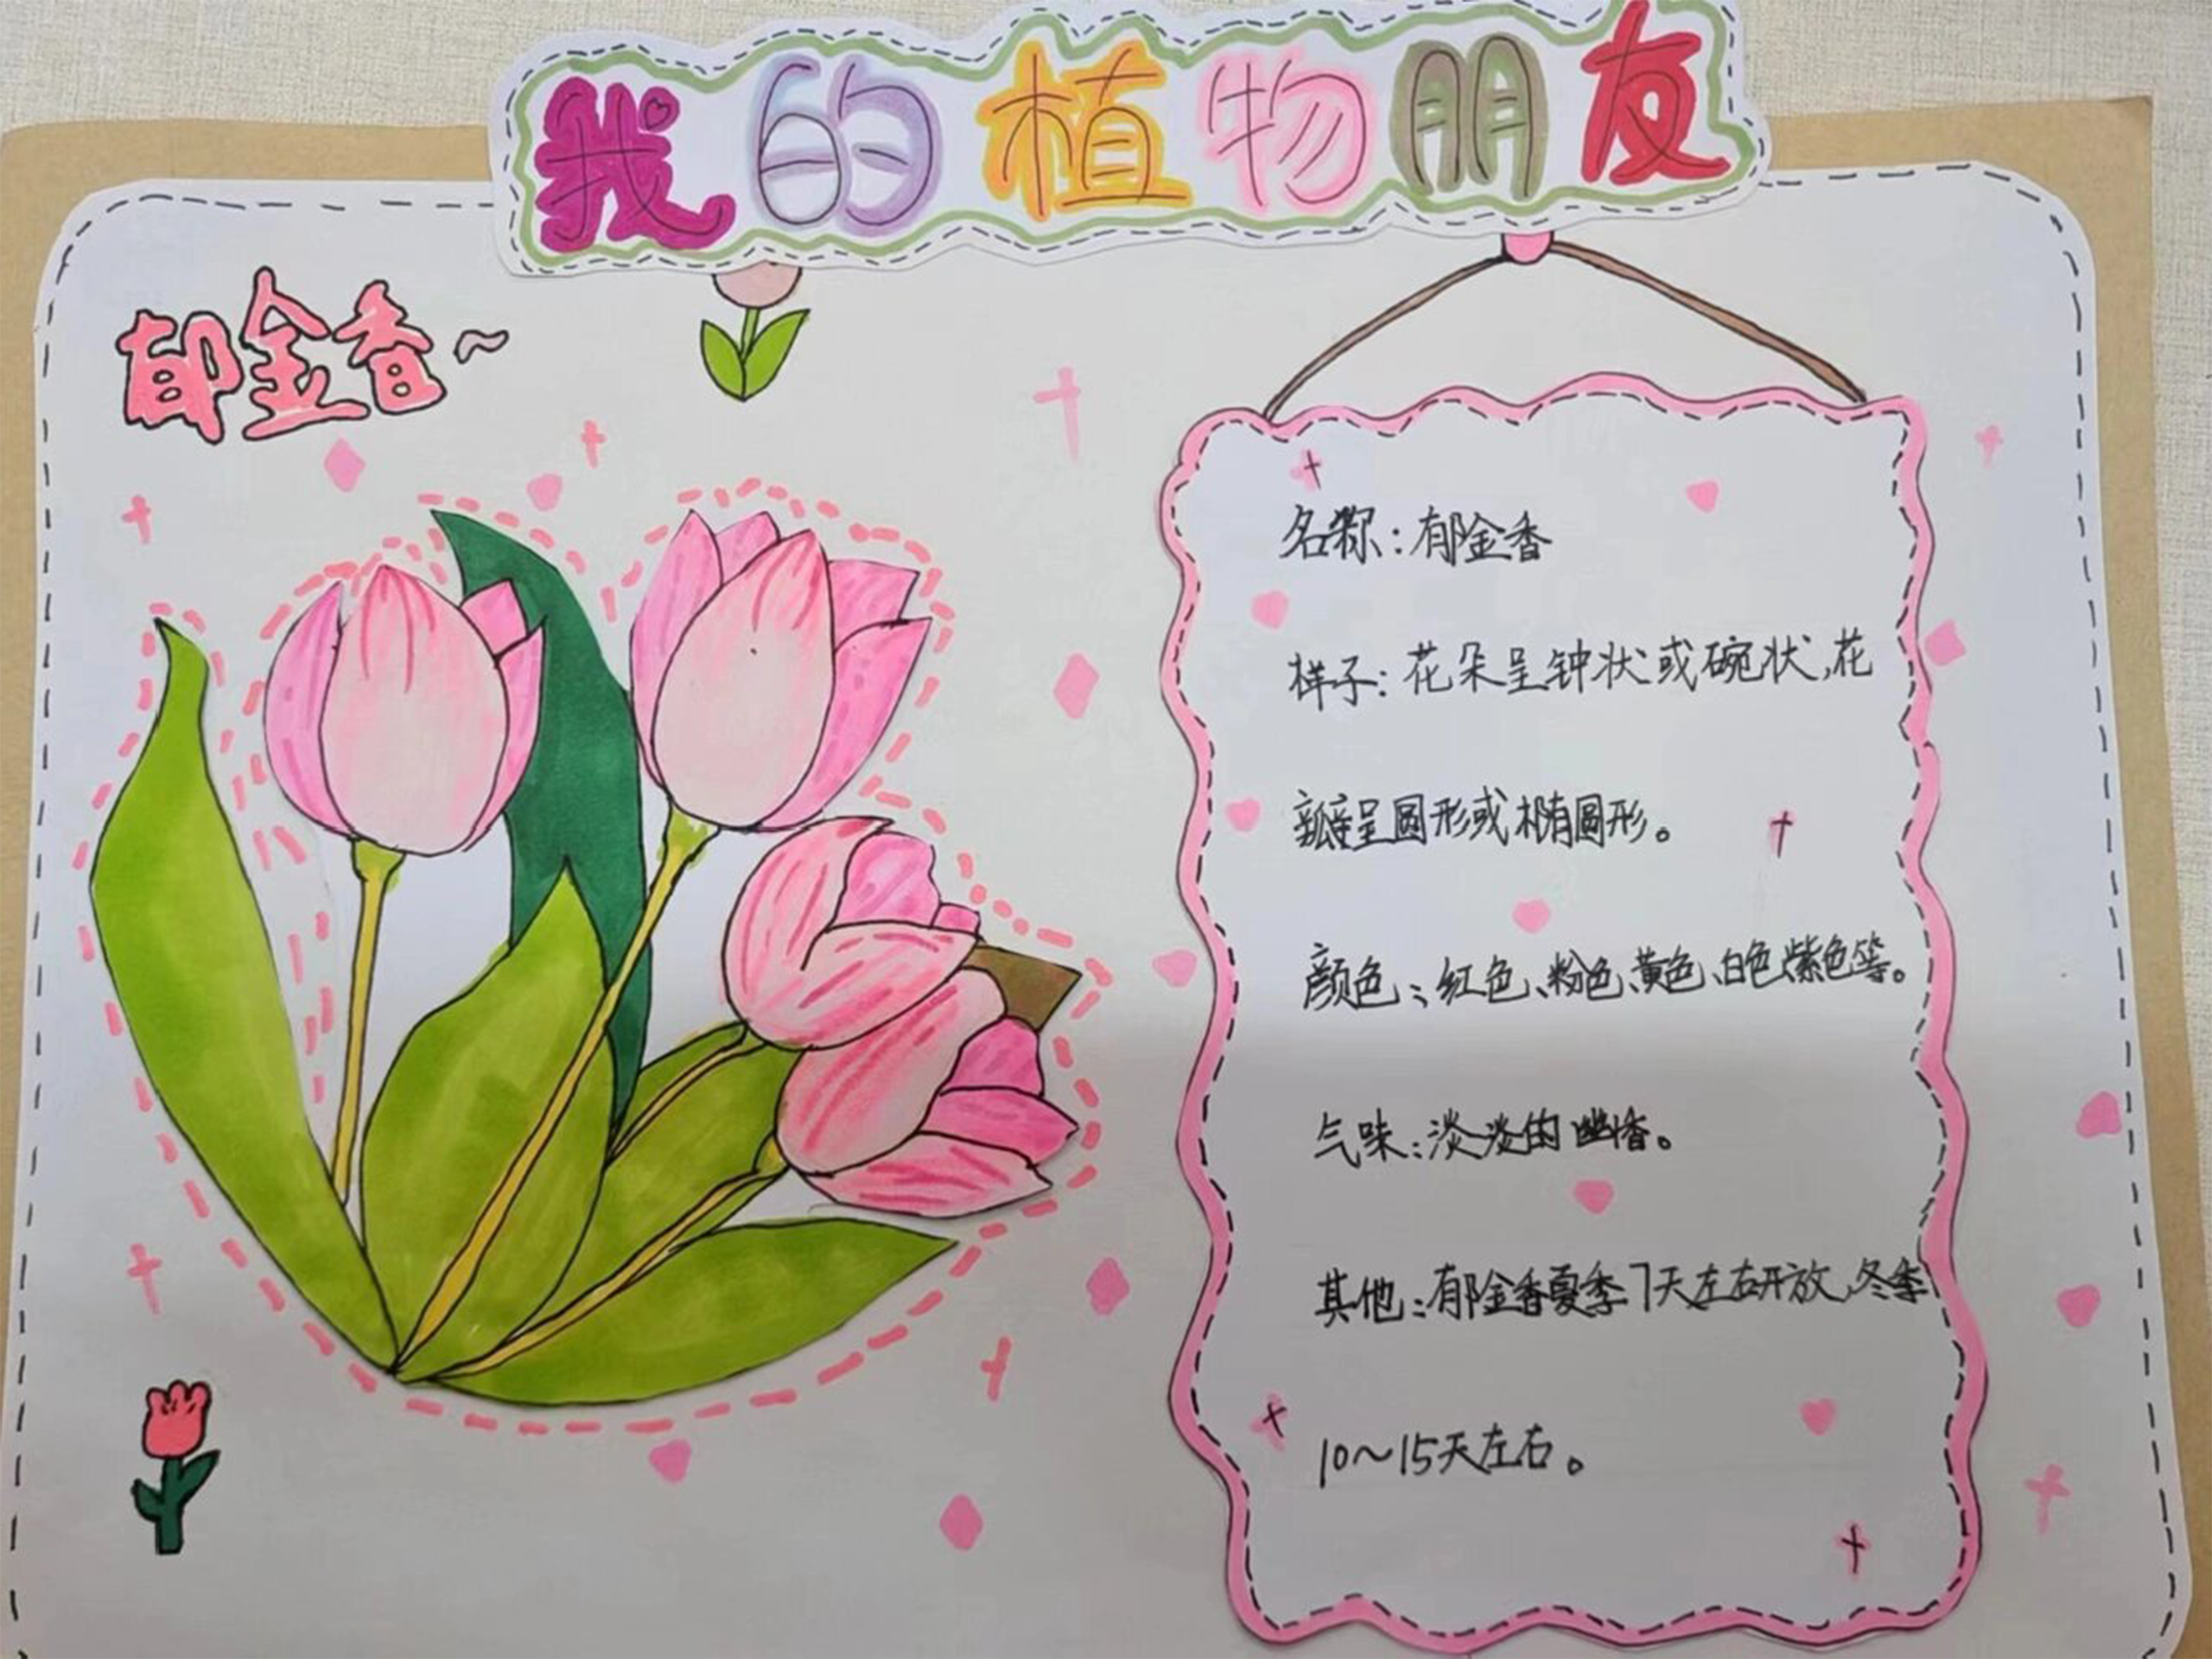 我的植物朋友
郁金香~
名称：郁金香
样子：花朵呈钟状或碗状，花
瓣呈圆形或椭圆形。
颜色：红色、粉色、黄色、白色、紫色等。
气味：淡淡的幽香。
其他：郁金香夏季7天左右开放，冬季
10~15天左右。